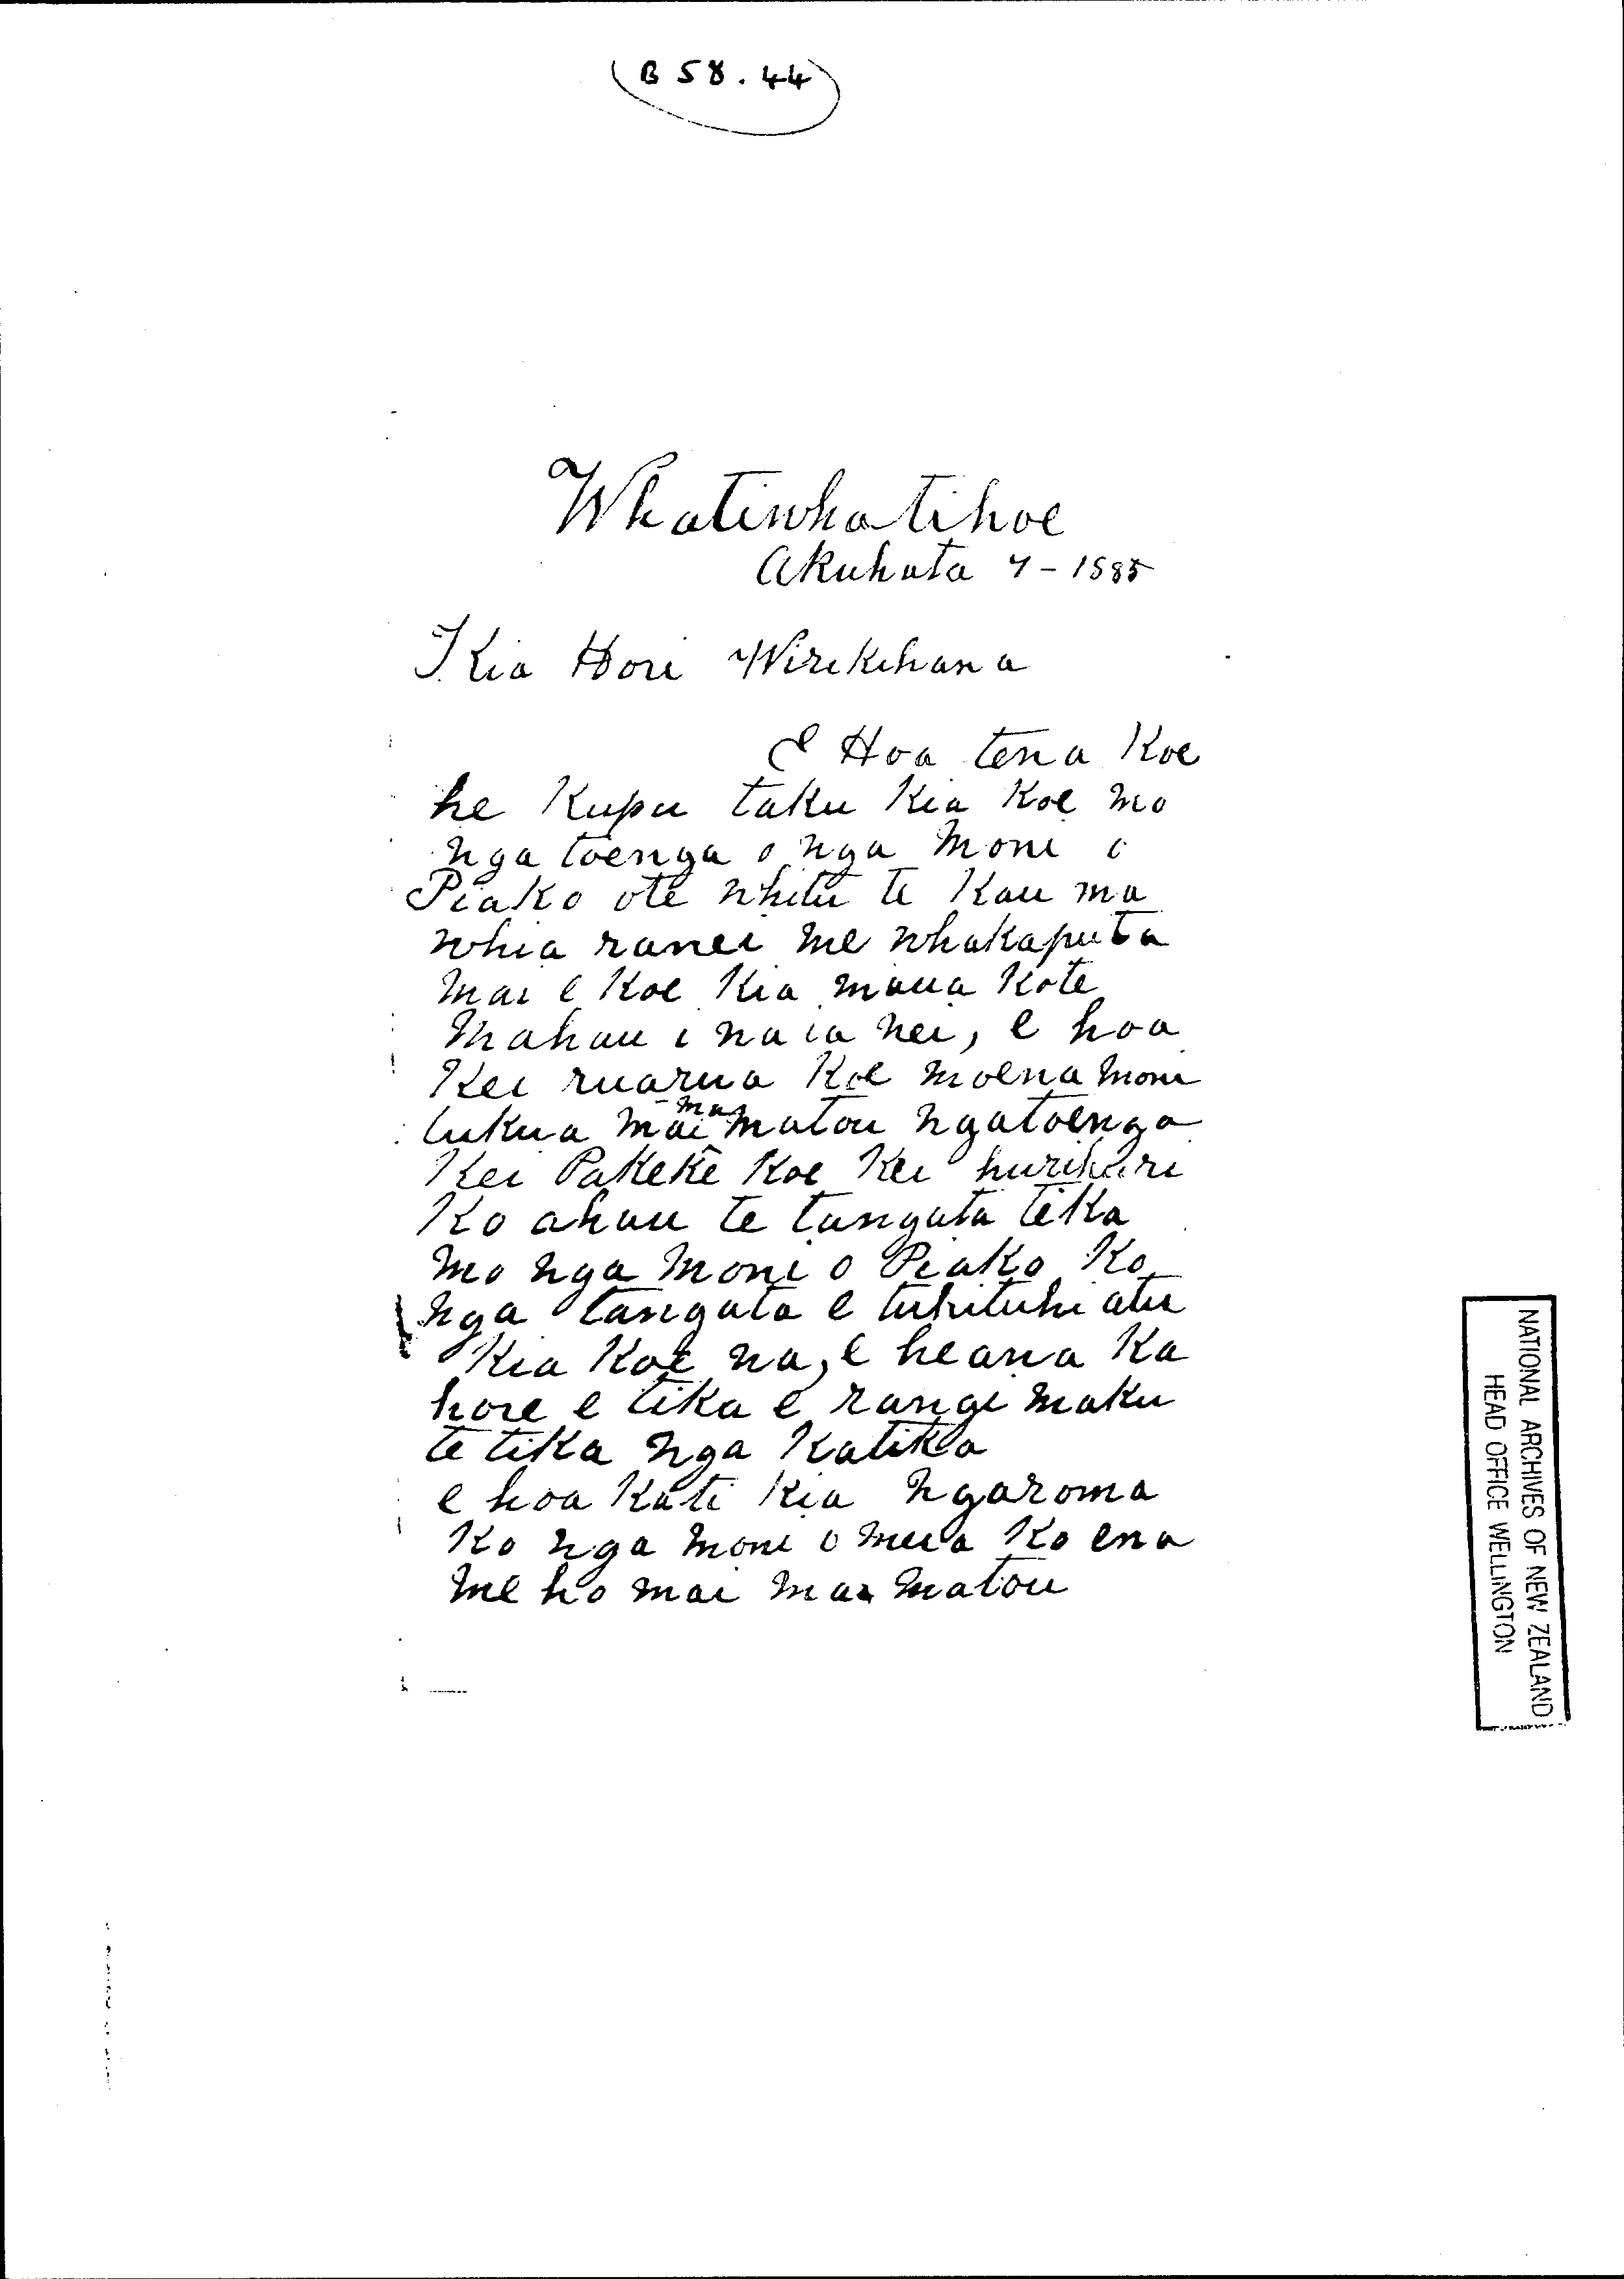 B 58.44
Whatiwhatihoe
Akuhata 7 - 1885
Kia Hori Wirekihana
E Hoa tena Koe
he Kupu taku Kia Koe mo
nga toenga o nga Moni o
Piako ote whitu te Kau ma
whia ranei me whakaputa
mai e Koe Kia maua Kote
Mahau i naia nei, e hoa
Kei ruarua Koe moena moni
tukua mai ma matou ngatoenga
Kei Pakeke Koe Kei hurihuri
Ko ahau te tangata tika
mo nga Moni o Piako Ko
nga tangata e tuhituhi atu
Kia Koe na, e heana Ka
hore e tika e rangi maku
te tika nga Katika
e hoa Kati Kia ngaroma
Ko nga moni o mua Ko ena
me ho mai ma matou
NATIONAL ARCHIVES OF NEW ZEALAND
HEAD OFFICE WELLINGTON